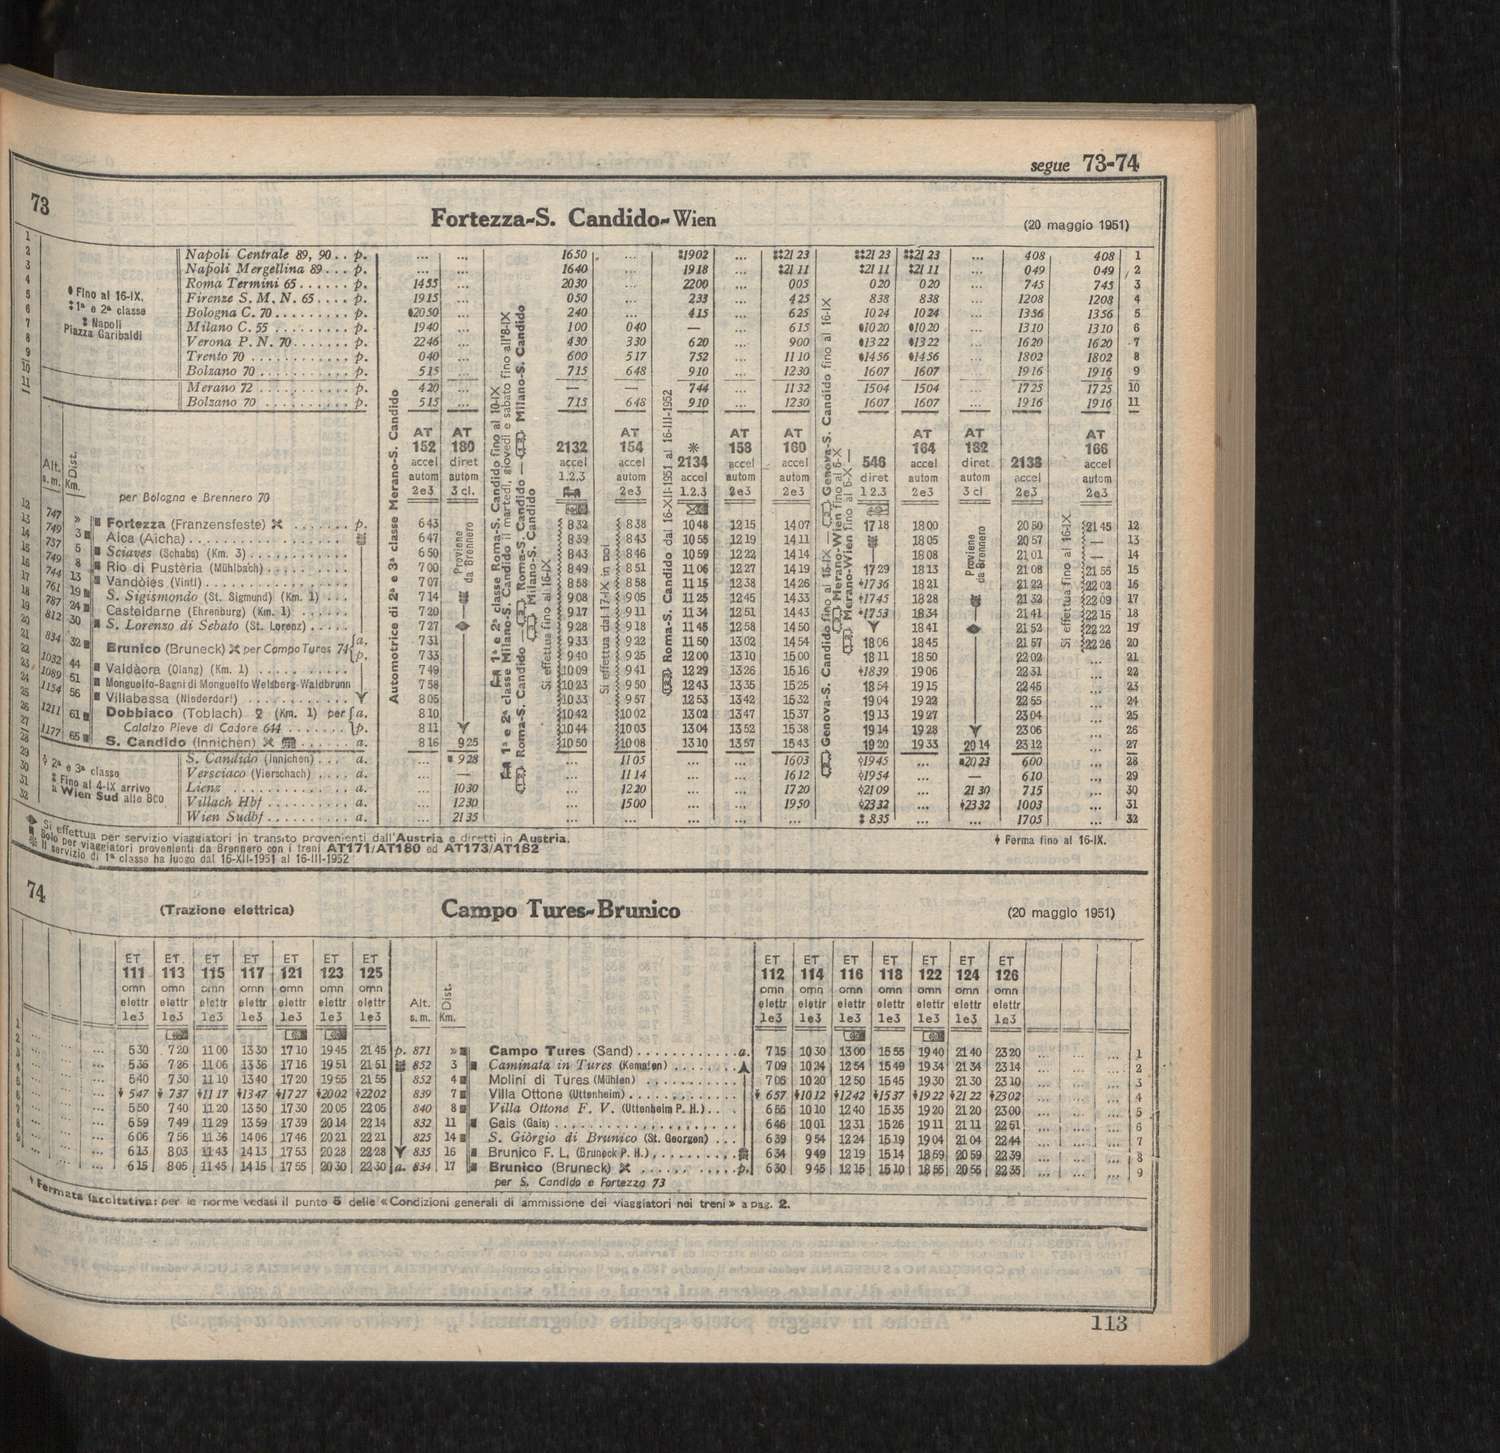 segue 73-74
73
Fortezza-S. Candido-Wien
(20 maggio 1951)
Fino al 16-IX.
1ª e 2ª classe
Napoli
Piazza Garibaldi
1 Napoli Centrale 89, 90 . . p. ... ... 1650 ... ‡1902 ... ‡‡21 23 ‡‡21 23 ‡‡21 23 ... 408 408 1
2 Napoli Mergellina 89 . . . p. ... ... 1640 ... 1918 ... ‡21 11 ‡21 11 ‡21 11 ... 049 049 2
3 Roma Termini 65 . . . . . . p. 1455 ... 2030 ... 2200 ... 005 020 020 ... 745 745 3
4 Firenze S. M. N. 65 . . . . p. 1915 ... 050 ... 233 ... 425 838 838 ... 1208 1208 4
5 Bologna C. 70 . . . . . . . . p. ♦2050 ... 240 ... 415 ... 625 1024 1024 ... 1356 1356 5
6 Milano C. 55 . . . . . . . . . p. 1940 ... 100 040 — ... 615 ♦1020 ♦1020 ... 1310 1310 6
7 Verona P. N. 70 . . . . . . . p. 2246 ... 430 330 620 ... 900 ♦1322 ♦1322 ... 1620 1620 7
8 Trento 70 . . . . . . . . . . . p. 040 ... 600 517 752 ... 1110 ♦1456 ♦1456 ... 1802 1802 8
9 Bolzano 70 . . . . . . . . . . p. 515 ... 715 648 910 ... 1230 1607 1607 ... 1916 1916 9
10 Merano 72 . . . . . . . . . . p. 420 ... — — 744 ... 1132 1504 1504 ... 1725 1725 10
11 Bolzano 70 . . . . . . . . . . p. 515 ... 715 648 910 ... 1230 1607 1607 ... 1916 1916 11
AT AT AT AT AT AT AT AT
152 180 2132 154 2134 158 160 546 164 182 2138 166
accel diret accel accel accel accel accel diret accel diret accel accel
autom autom 1.2.3 autom 1.2.3 autom autom 1 2.3 autom autom autom
2e3 3 cl. 2e3 2e3 2e3 2e3 3 cl 2e3 2e3
Alt. s. m.
Dist. Km.
per Bologna e Brennero 70
Automotrice di 2ª e 3ª classe Merano-S. Candido
Proviene da Brennero
1ª e 2ª classe Roma-S. Candido fino al 10-IX
1ª e 2ª classe Milano-S. Candido il martedì, giovedì e sabato fino all'8-IX
Roma-S. Candido — Roma-S. Candido — Milano-S. Candido
Milano-S. Candido
Si effettua fino al 16-IX
Si effettua dal 17-IX in poi
Roma-S. Candido dal 16-XII-1951 al 16-III-1952
Genova-S. Candido fino al 15-IX — Genova-S. Candido fino al 16-IX
Merano-Wien fino al 6-X
Merano-Wien fino al 6-X —
Proviene da Brennero
Si effettua fino al 16-IX
12 747 » Fortezza (Franzensfeste) . . . . . . . p. 643 832 838 1048 1215 1407 1718 1800 2050 2145 12
13 749 3 Aica (Aicha) . . . . 647 839 843 1055 1219 1411 1805 2057 — 13
14 737 5 Sciaves (Schabs) (Km. 3) . . . . 650 843 846 1059 1222 1414 1808 2101 — 14
15 749 8 Rio di Pustèria (Mühlbach) . . . . 700 849 851 1106 1227 1419 1729 1813 2108 2155 15
16 744 13 Vandòies (Vintl) . . . . 707 858 858 1115 1238 1426 1736 1821 2122 2203 16
17 761 19 S. Sigismondo (St. Sigmund) (Km. 1) . . . 714 908 905 1125 1245 1433 1745 1828 2132 2209 17
18 787 24 Casteldarne (Ehrenburg) (Km. 1) . . . . 720 917 911 1134 1251 1443 1753 1834 2141 2215 18
19 812 30 S. Lorenzo di Sebato (St. Lorenz) . . . . . 727 928 918 1145 1258 1450 1841 2152 2222 19
20 834 32 Brunico (Bruneck) per Campo Tures 74 a. 731 933 922 1150 1302 1454 1806 1845 2157 2226 20
21 p. 733 940 925 1200 1310 1500 1811 1850 2202 ... 21
22 1032 44 Valdàora (Olang) (Km. 1) . . . . 749 1009 941 1229 1326 1516 1839 1906 2231 ... 22
23 1089 51 Monguelfo-Bagni di Monguelfo Welsberg-Waldbrunn 758 1023 950 1243 1335 1525 1854 1915 2245 ... 23
24 1154 56 Villabassa (Niederdorf) . . . . 805 1033 957 1253 1342 1532 1904 1922 2255 ... 24
25 1211 61 Dobbiaco (Toblach) (Km. 1) per a. 810 1042 1002 1302 1347 1537 1913 1927 2304 ... 25
26 Calalzo Pieve di Cadore 644 . . . . p. 811 1044 1003 1304 1352 1538 1914 1928 2306 ... 26
27 1177 65 S. Candido (Innichen) . . . . a. 816 925 1050 1008 1310 1357 1543 1920 1933 2014 2312 ... 27
28 S. Candido (Innichen) . . a. ... 928 ... 1105 ... ... 1603 1945 ... 2023 600 ... 28
29 Versciaco (Vierschach) . . . . a. ... — ... 1114 ... ... 1612 1954 ... — 610 ... 29
30 Lienz . . . . . . . . . . . a. ... 1030 ... 1220 ... ... 1720 2109 ... 2130 715 ... 30
31 Villach Hbf . . . . . . . . . a. ... 1230 ... 1500 ... ... 1950 2332 ... 2332 1003 ... 31
32 Wien Sudbf . . . . . . . . . a. ... 2135 ... ... ... ... ... 835 ... ... 1705 ... 32
2ª e 3ª classe
Fino al 4-IX arrivo
a Wien Sud alle 800
Si effettua per servizio viaggiatori in transito provenienti dall'Austria e diretti in Austria.
Solo per viaggiatori provenienti da Brennero con i treni AT171/AT180 ed AT173/AT182
Il servizio di 1ª classe ha luogo dal 16-XII-1951 al 16-III-1952
Ferma fino al 16-IX.
74
(Trazione elettrica)
Campo Tures-Brunico
(20 maggio 1951)
ET ET ET ET ET ET ET ET ET ET ET ET ET ET
111 113 115 117 121 123 125 112 114 116 118 122 124 126
omn omn omn omn omn omn omn omn omn omn omn omn omn omn
elettr elettr elettr elettr elettr elettr elettr Alt. Dist. elettr elettr elettr elettr elettr elettr elettr
1e3 1e3 1e3 1e3 1e3 1e3 1e3 s. m. Km. 1e3 1e3 1e3 1e3 1e3 1e3 1e3
1 530 720 1100 1330 1710 1945 2145 p. 871 » Campo Tures (Sand) . . . . . . . . . . . . a. 715 1030 1300 1555 1940 2140 2320 1
2 536 726 1106 1336 1716 1951 2151 852 3 Caminata in Tures (Kematen) . . . . 709 1024 1254 1549 1934 2134 2314 2
3 540 730 1110 1340 1720 1955 2155 852 4 Molini di Tures (Mühlen) . . . . 705 1020 1250 1545 1930 2130 2310 3
4 547 737 1117 1347 1727 2002 2202 839 7 Villa Ottone (Uttenheim) . . . . 657 1012 1242 1537 1922 2122 2302 4
5 550 740 1120 1350 1730 2005 2205 840 8 Villa Ottone F. V. (Uttenheim P. H.) . . . 655 1010 1240 1535 1920 2120 2300 5
6 559 749 1129 1359 1739 2014 2214 832 11 Gais (Gais) . . . . 646 1001 1231 1526 1911 2111 2251 6
7 606 756 1136 1406 1746 2021 2221 825 14 S. Giòrgio di Brunico (St. Georgen) . . . 639 954 1224 1519 1904 2104 2244 7
8 613 803 1143 1413 1753 2028 2228 835 16 Brunico F. L. (Bruneck P. H.) . . . . 634 949 1219 1514 1859 2059 2239 8
9 615 805 1145 1415 1755 2030 2230 a. 834 17 Brunico (Bruneck) . . . . p. 630 945 1215 1510 1855 2056 2235 9
per S. Candido e Fortezza 73
Fermata facoltativa: per le norme vedasi il punto 5 delle «Condizioni generali di ammissione dei viaggiatori nei treni» a pag. 2.
113